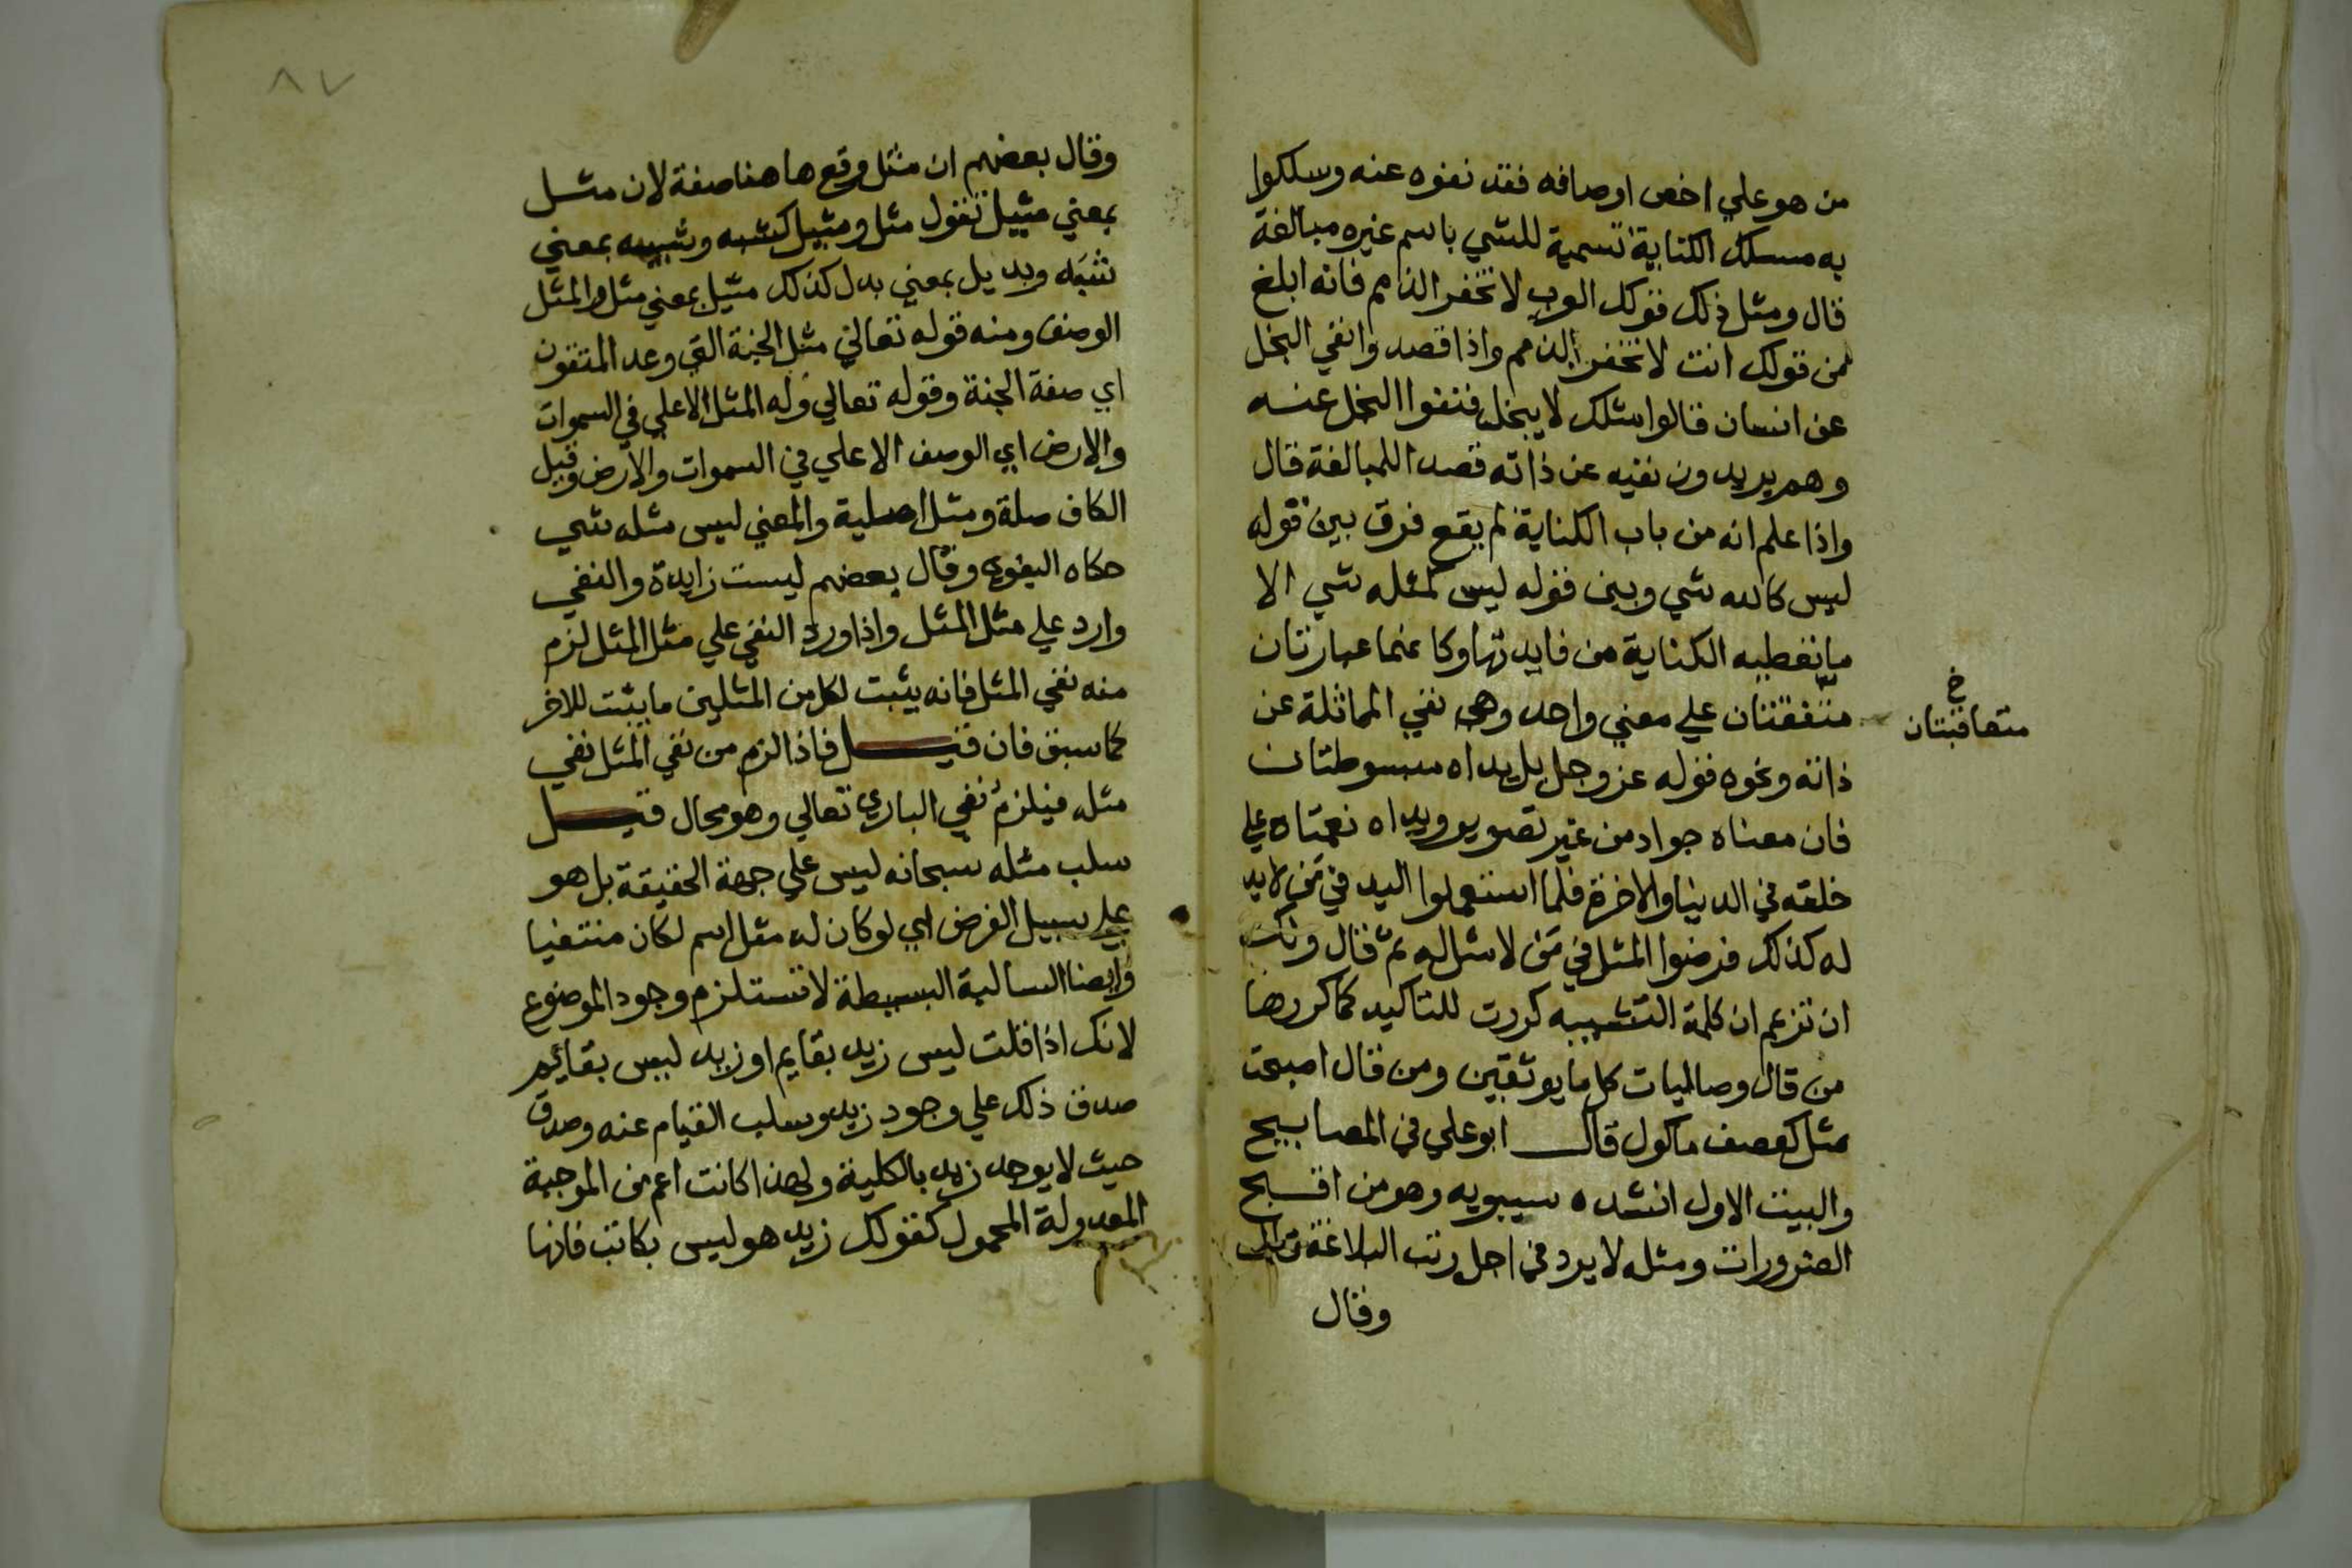 من هو علي اخص اوصافه فقد نفوه عنه وسلكوا
به مسلك الكناية تسمية للشي باسم غيره مبالغة
قال ومثل ذلك قولك العرب لا تخفر الذمم فانه ابلغ
من قولك انت لا تخفر الذمم واذا قصدوا نفي البخل
عن انسان قالوا مثلك لا يبخل فنفوا البخل عنه
وهم يريدون نفيه عن ذاته قصدا للمبالغة قال
واذا علم انه من باب الكناية لم يقع فرق بين قوله
ليس كالله شي وبين قوله ليس كمثله شي الا
ما تعطيه الكناية من فايدتها وكانهما عبارتان
متفقتان علي معني واحد وهي نفي المماثلة عن
خ
متعاقبتان
ذاته ونحوه قوله عز وجل بل يداه مبسوطتان
فان معناه جواد من غير تصوير ويداه نعمتاه علي
خلقه في الدينا والاخرة فلما استعملوا اليد في من لا يد
له كذلك فرضوا المثل في من لا مثل له ثم قال ولك
ان تزعم ان كلمة التشبيه كررت للتاكيد كما كررها
من قال وصاليات ككما يوثقين ومن قال اصبحت
مثل كعصف ماكول قال ابو علي في المصابيح
والبيت الاول انشده سيبويه وهو من اقبح
الضرورات ومثله لا يرد في اجل رتب البلاغة
وقال
٨٧
وقال بعضهم ان مثل وقع ها هنا صفة لان مثل
بمعني مثيل تقول مثل ومثيل كشبه وشبيه بمعني
شبَه وبديل بمعني بدل كذلك مثيل بمعني مثل والمثل
الوصف ومنه قوله تعالي مثل الجنة التي وعد المتقون
اي صفة الجنة وقوله تعالي وله المثل الاعلي في السموات
والارض اي الوصف الاعلي في السموات والارض وقيل
الكاف صلة ومثل اصلية والمعني ليس مثله شي
حكاه البغوي وقال بعضهم ليست زايدة والنفي
وارد علي مثل المثل واذا ورد النفي علي مثل المثل لزم
منه نفي المثل فانه يثبت لكل من المثلين ما يثبت للاخر
كما سبق فان قيل فاذا لزم من نفي المثل نفي
مثله فيلزم نفي الباري تعالي وهو محال قيل
سلب مثله سبحانه ليس علي جهة الحقيقة بل هو
علي سبيل الفرض اي لو كان له مثل لكان منتفيا
وايضا السالبة البسيطة لا تستلزم وجود الموضوع
لانك اذا قلت ليس زيد بقايم او زيد ليس بقايم
صدق ذلك علي وجود زيد وسلب القيام عنه وصدق
حيث لا يوجد زيد بالكلية ولهذا كانت اعم من الموجبة
المعدولة المحمول كقولك زيد هو ليس بكاتب فانها